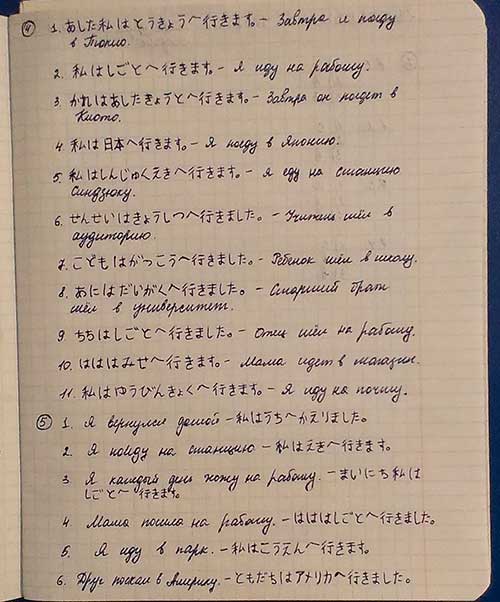 ④ 1. あした私はとうきょうへ行きます。- Завтра я поеду
в Токио.
2. 私はしごとへ行きます。- Я иду на работу.
3. かれはあしたきょうとへ行きます。- Завтра он поедет в
Киото.
4. 私は日本へ行きます。- Я поеду в Японию.
5. 私はしんじゅくえきへ行きます。- Я еду на станцию
Синдзюку.
6. せんせいはきょうしつへ行きました。- Учитель шёл в
аудиторию.
7. こどもはがっこうへ行きました。- Ребёнок шёл в школу.
8. あにはだいがくへ行きました。- Старший брат
шёл в университет.
9. ちちはしごとへ行きました。- Отец шёл на работу.
10. はははみせへ行きます。- Мама идёт в магазин.
11. 私はゆうびんきょくへ行きます。- Я иду на почту.
⑤ 1. Я вернулся домой - 私はうちへかえりました。
2. Я пойду на станцию - 私はえきへ行きます。
3. Я каждый день хожу на работу. - まいにち私は
しごとへ行きます。
4. Мама пошла на работу. - はははしごとへ行きました。
5. Я иду в парк. - 私はこうえんへ行きます。
6. Друг поехал в Америку. - ともだちはアメリカへ行きました。